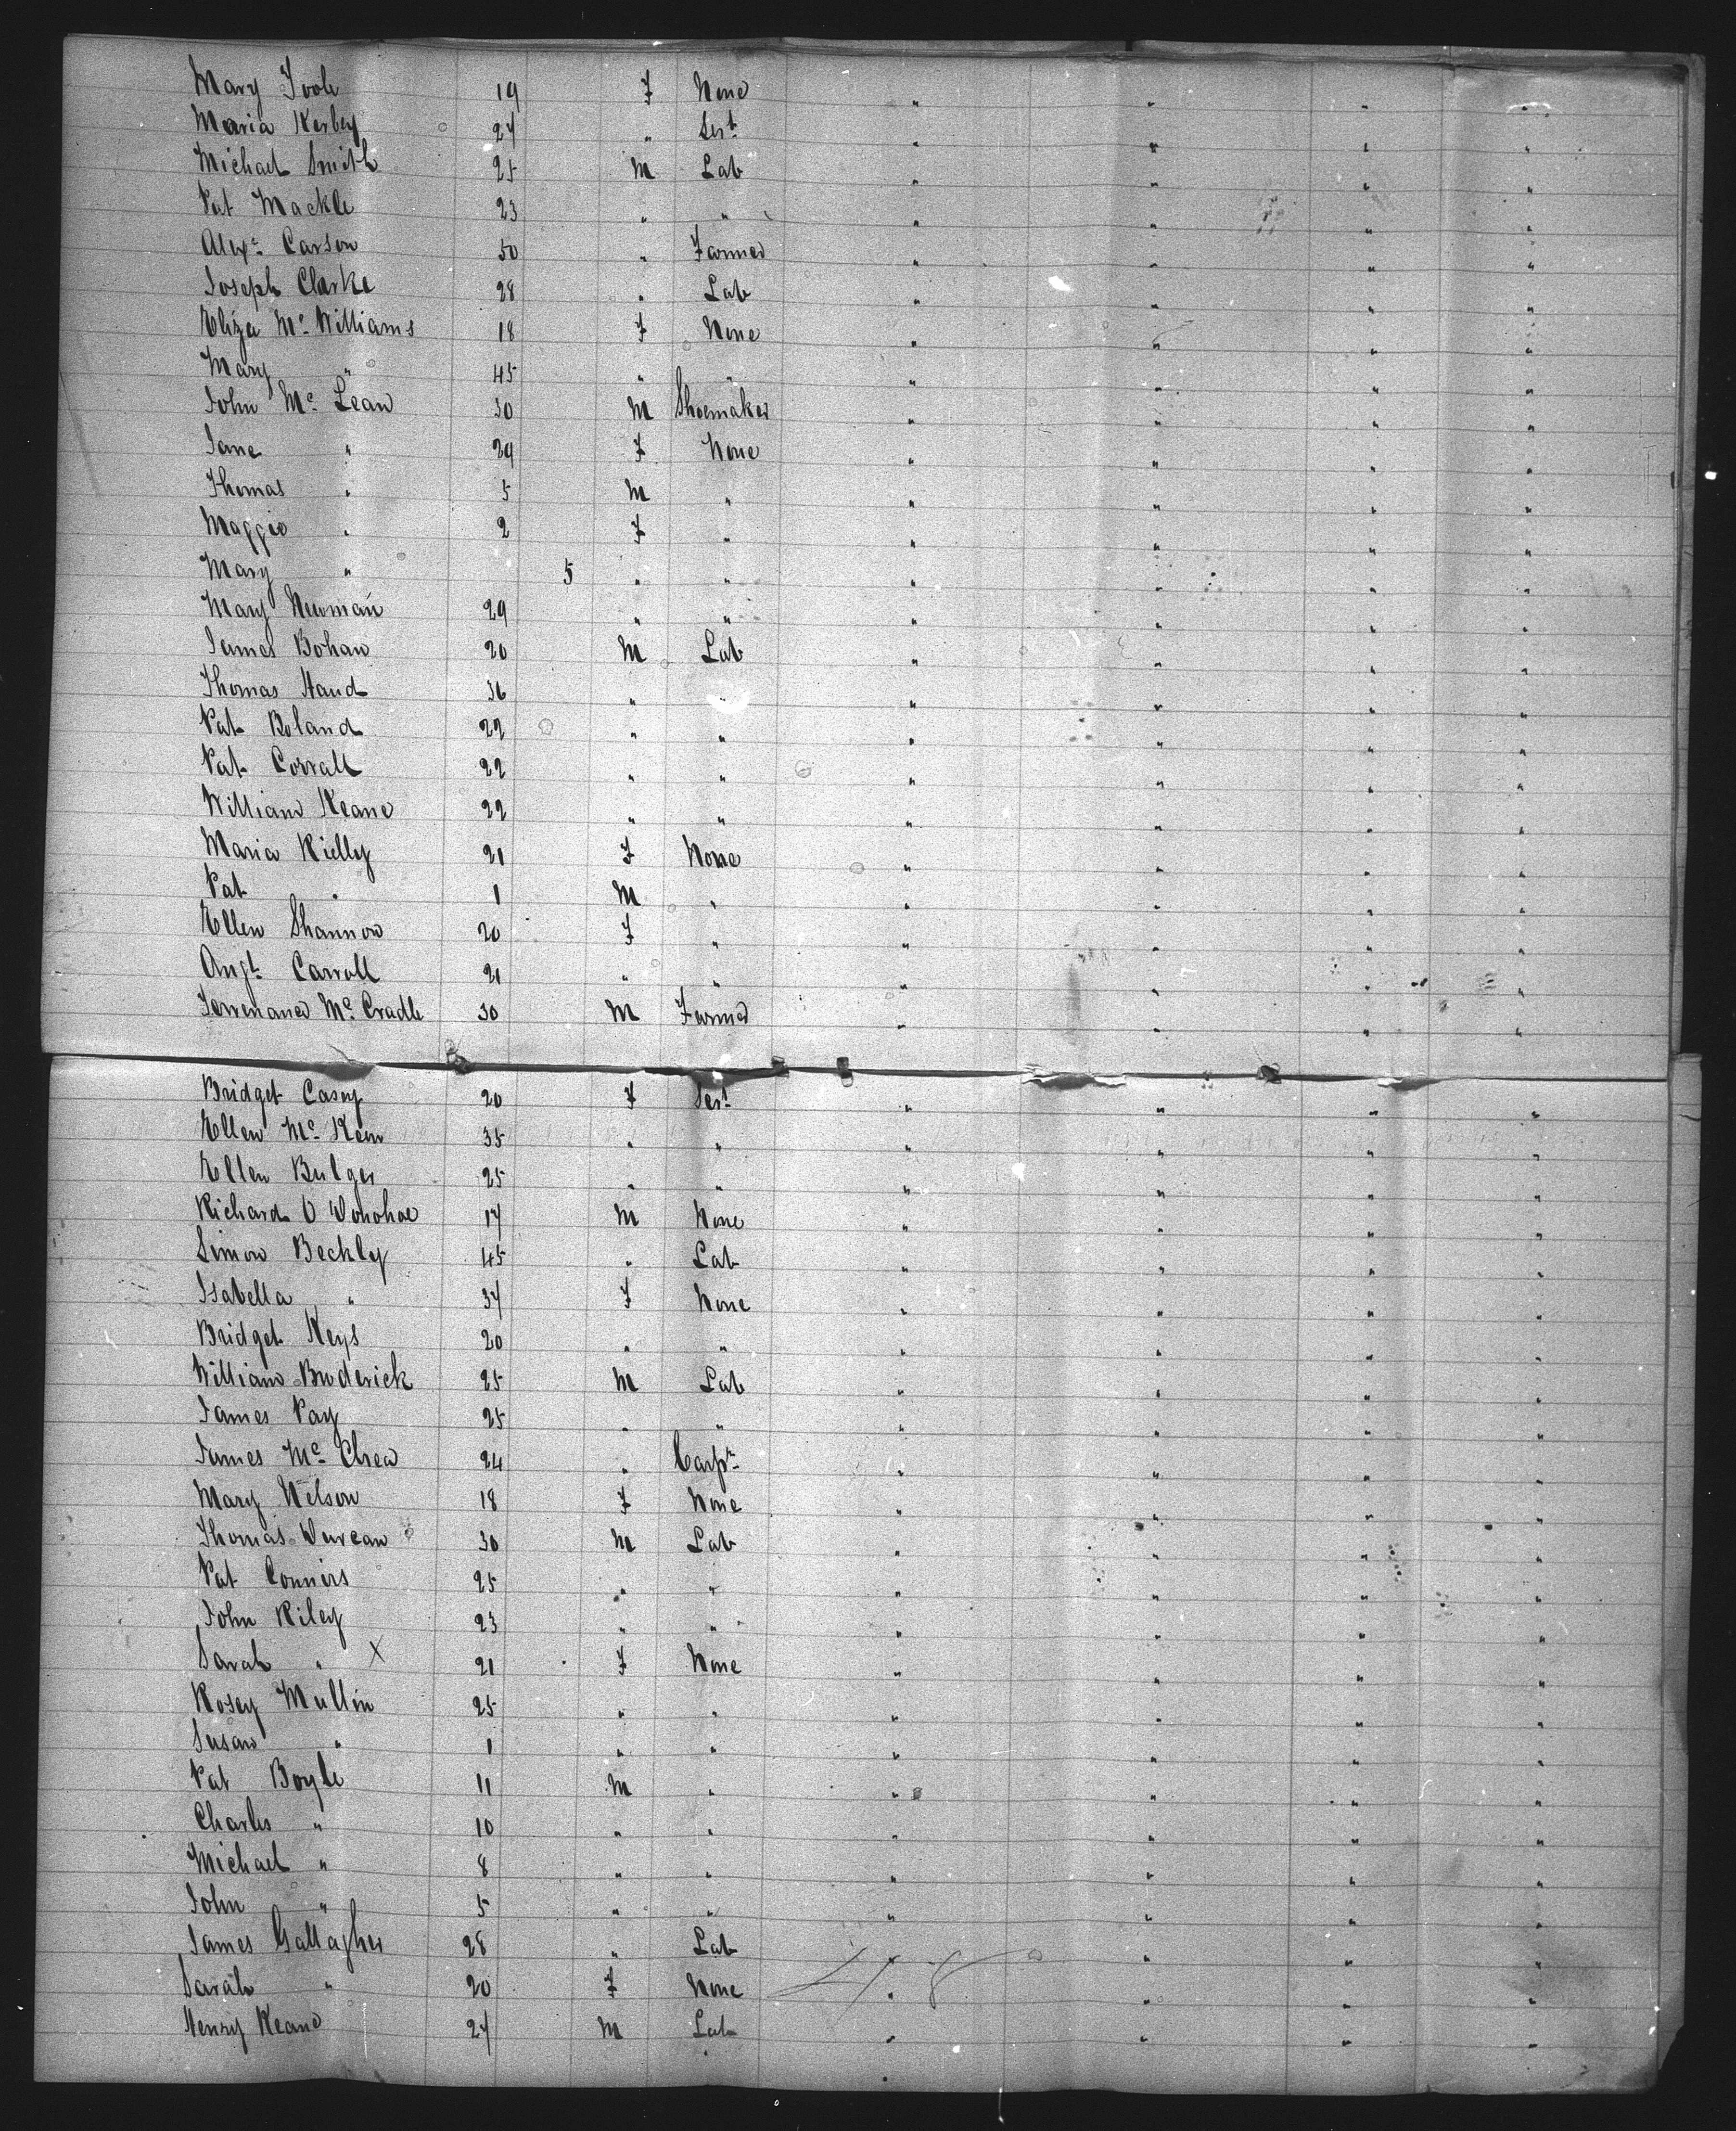 Mary Toole 19 F None " " " "
Maria Kerbey 27 " Sert " " " "
Michael Smith 25 M Lab " " " "
Pat Mackle 23 " " " " " "
Alexr Carson 50 " Farmer " " " "
Joseph Clarke 28 " Lab " " " "
Eliza Mc Williams 18 F None " " " "
Mary " 45 " " " " " "
John Mc Lean 30 M Shoemaker " " " "
Jane " 29 F None " " " "
Thomas " 5 M " " " " "
Maggie " 2 F " " " " "
Mary " 5 " " " " " "
Mary Newman 29 " " " " " "
James Bohan 20 M Lab " " " "
Thomas Hand 36 " " " " " "
Pat Boland 22 " " " " " "
Pat Corrall 22 " " " " " "
William Keane 22 " " " " " "
Maria Rielly 21 F None " " " "
Pat " 1 M " " " " "
Ellen Shannon 20 F " " " " "
Augt Carroll 21 " " " " " "
Mc Cradle 30 M Farmer " " " "
Bridget Casey 20 F Sert " " " "
Ellen Mc Keen 35 " " " " " "
Ellen Bulger 25 " " " " " "
Richard O Donohoe 17 M None " " " "
Simon Beckley 45 " Lab " " " "
Isabella " 37 F None " " " "
Bridget Keys 20 " " " " " "
William Broderick 25 M Lab " " " "
James Pay 25 " " " " " "
James Mc Chea 24 " Carpr " " " "
Mary Nelson 18 F None " " " "
Thomas Durcan 30 M Lab " " " "
Pat Conners 25 " " " " " "
John Riley 23 " " " " " "
Sarah " X 21 F None " " " "
Rosey Mullin 25 " " " " " "
Susan " 1 " " " " " "
Pat Boyle 11 M " " " " "
Charles " 10 " " " " " "
Michael " 8 " " " " " "
John " 5 " " " " " "
James Gallagher 28 " Lab " " " "
Sarah " 20 F None " " " "
Henry Keane 27 M Lab " " " "